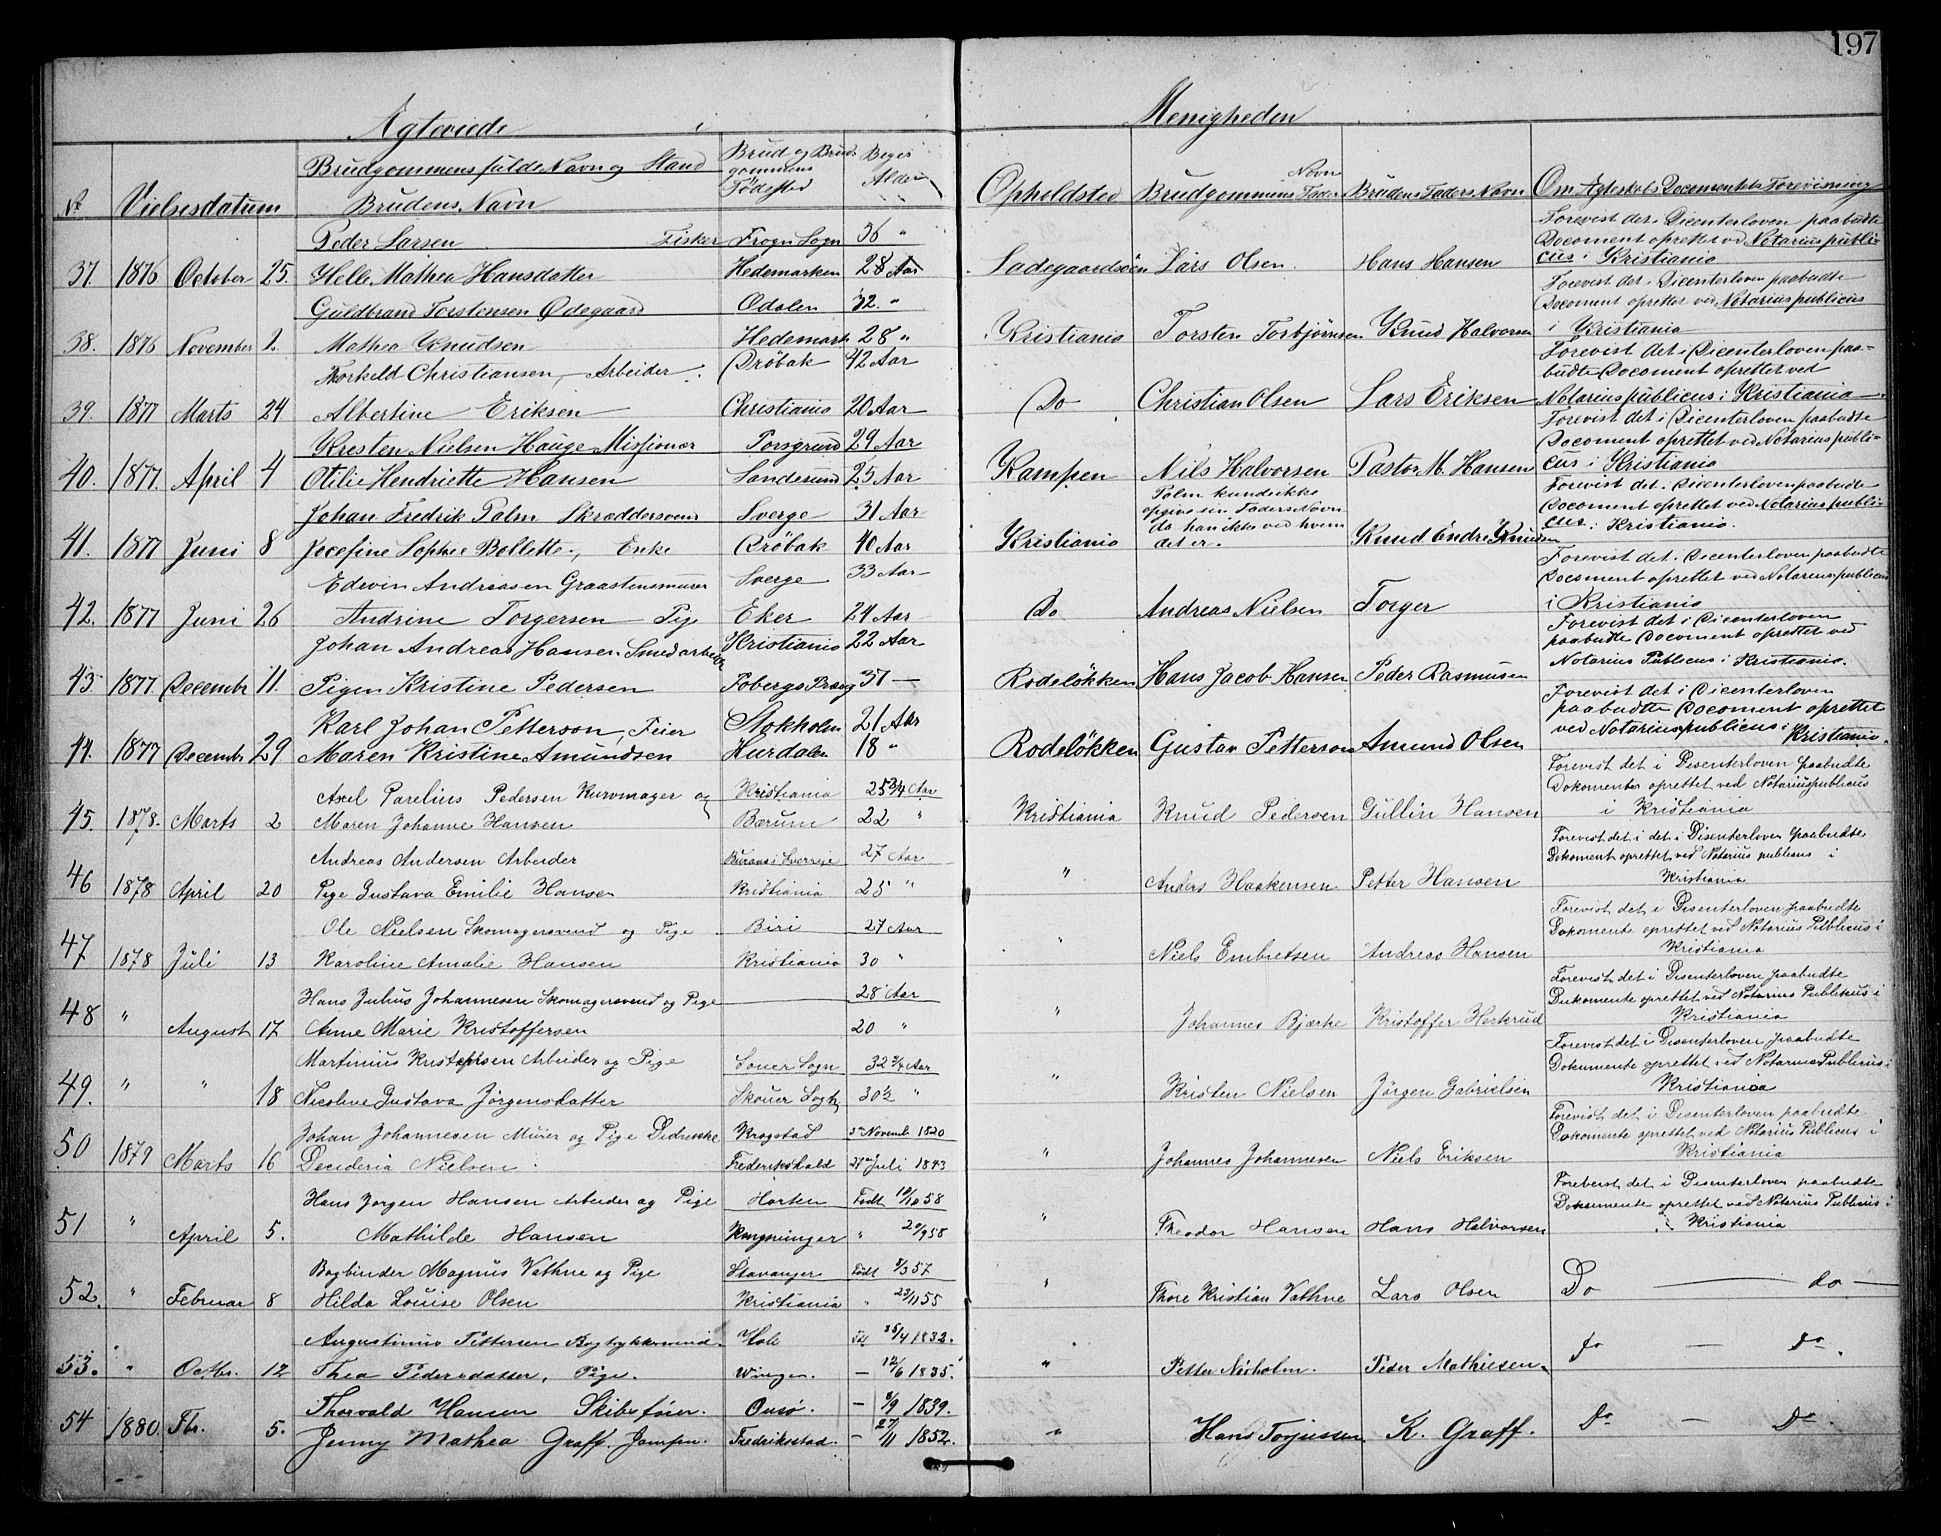 197
Ægteviede i Menigheden
No Vielsesdatum Brudgommens fulde Navn og Stand Brudens Navn Brud og Brudgommens Fødested Begges Alder Opholdsted Brudgommens Faders Navn Brudens Faders Navn Om Ægteskabs Documentets Forevisning
Peder Larsen Fisker Frogn Sogn 36 " Forevist det i Dicenterloven paabudte
Document oprettet ved Notarius publi-
37. 1876 October 25. Helle Mathea Hansdatter Hedemarken 28 Aar Ladegaardsøen Lars Olsen. Hans Hansen cus i Kristiania
Forevist det i Dicenterloven paabudte
Guldbrand Torstensen Ødegaard Odalen 32. " Document oprettet ved Notarius publicus
38. 1876 November 2. Mathea Knudsen Hedemark 28 " Kristiania Torsten Torbjørnsen Knud Halvorsen i Kristiania
Forevist det i Dicenterloven paa-
Thorkeld Christiansen, Arbeider. Drøbak 42 Aar budte Document oprettet ved
39. 1877 Marts 24 Albertine Eriksen Christiania 20 Aar Do Christian Olsen Lars Eriksen Notarius publicus i Kristiania
Forevist det i Dicenterloven paabudte
Kresten Nielsen Hauge Missionær Porsgrund 29 Aar Document oprettet ved Notarius publi-
40. 1877. April 4 Otilie Henriette Hansen Sandesund 25 Aar Kampen Nils Halvorsen Pastor M. Hansen cus i Kristiania
Palm kunde ikke Forevist det i Dicenterloven paabudte
Johan Fredrik Palm Skræddersvend Sverge 31 Aar opgive sin Faders Navn Document oprettet ved Notarius publi-
da han ikke ved hvem cus i Kristiania.
41. 1877 Juni 8 Josefine Sophie Bollette, Enke Drøbak 40 Aar Kristiania det er. Knud Endre Knudsen
Forevist det i Dicenterloven paabudte
Edevin Andreasen Graastensmurer Sverge 33 Aar Document oprettet ved Notarius publicus
42. 1877 Juni 26 Andrine Torgersen Pige Eker 24 Aar Do Andreas Nielsen Torger i Kristiania
Forevist det i Dicenterloven
Johan Andreas Hansen Smedarbeider Kristiania 22 Aar paabudte Document oprettet ved
43 1877. Decembr 11. Pigen Kristine Pedersen 37 — Rodeløkken Hans Jacob Hansen Peder Rasmusen Notarius Publicus i Kristiania.
Forevist det i Dicenterloven
Karl Johan Petterson, Feier Stokholm 21 Aar paabudte Document oprettet
44. 1877 Decembr 29. Maren Kristine Amundsen Hurdalen 18 " Rodeløkken Gustav Petterson Amund Olsen ved Notarius publicus i Kristiania.
Forevist det i Disenterloven paabudte
Axel Parelius Pedersen Kurvmager og Kristiania 25 3/4 Aar Dokomenter oprettet ved Notarius publicus
45. 1878. Marts 2 Maren Johanne Hansen Bærum 22 " Kristiania Knud Pedersen Gullin Hansen i Kristiania
Forevist det i det i Disenterloven paabudte
Andreas Andersen Arbeider i Sverrige 27 Aar Dokoment oprettet ved Notarius publicus i
46 1878 April 20 Pige Gustava Emilie Hansen Kristiania 25 " " Anders Haakensen Petter Hansen Kristiania
Forevist det i Disenterloven paabudte
Ole Nielsen Skomagersvend og Pige Biri 27 Aar Dokomente oprettet ved Notarius Publicus i
47 1878 Juli 13 Karoline Amalie Hansen Kristiania 30 " " Niels Embretsen Andreas Hansen Kristiania
Forevist det i Disenterloven paabudte
Hans Julius Johannesen Skomagersvend og Pige 28 Aar Dukomente oprettet ved Notarius Publikus i
48 " August 17 Anne Marie Kristoffersen 20 " " Johannes Bjerke Kristoffer Herkrud Kristiania
Forevist det i Disenterloven paabudte
Martinius Arbeider og Pige Soner Sogn 32 3/4 Aar Dokumente oprettet ved Notarius Publicus i
49. " " 18 Nicoline Gustava Jörgensdatter Skouer Sogn 30 1/2 " " Kristen Nielsen Jörgen Gabrielsen Kristiania
Forevist det i Disenterloven paabudte
Johan Johannesen Murer og Pige Didrikke Krogstad 3 Novemb 1820 Dokomente oprettet ved Notarius Publicus i
50 1879 Marts 16 Decideria Nielsen Frederikshald 27 Juli 1843 " Johannes Johannesen Niels Eriksen Kristiania
det i Disenterloven paabudte
Hans Jorgen Hansen Arbeider og Pige Horten Født 10/10 58 Dokumente oprettet ved Notarius Publicus i
51 " April 5. Mathilde Hansen " 20/9 58 " Theodor Hansen Hans Halvorsen Kristiania
Bogbinder Magnus Vathne og Pige Stavanger Født 8/3 57
52. " Februar 8 Hilda Louise Olsen Kristiania " 23/11 55 " Thore Kristian Vathne Lars Olsen Do — do —
Augustinus Pettersen Hole 25/4 1832.
53. " Octbr. 12 Thea Pedersdatter, Pige. — 12/6 1835. " Petter Nerholm. Peder Mathiesen. do — do.
Thorvald Hansen Skibsfører. Onsø. — 8/9 1839.
54 1880. Fbr. 5. Jenny Mathea Graff. Jomfru. Fredriksstad. — 27/11 1852. " Hans Torjussen K. Graff. Do — Do.